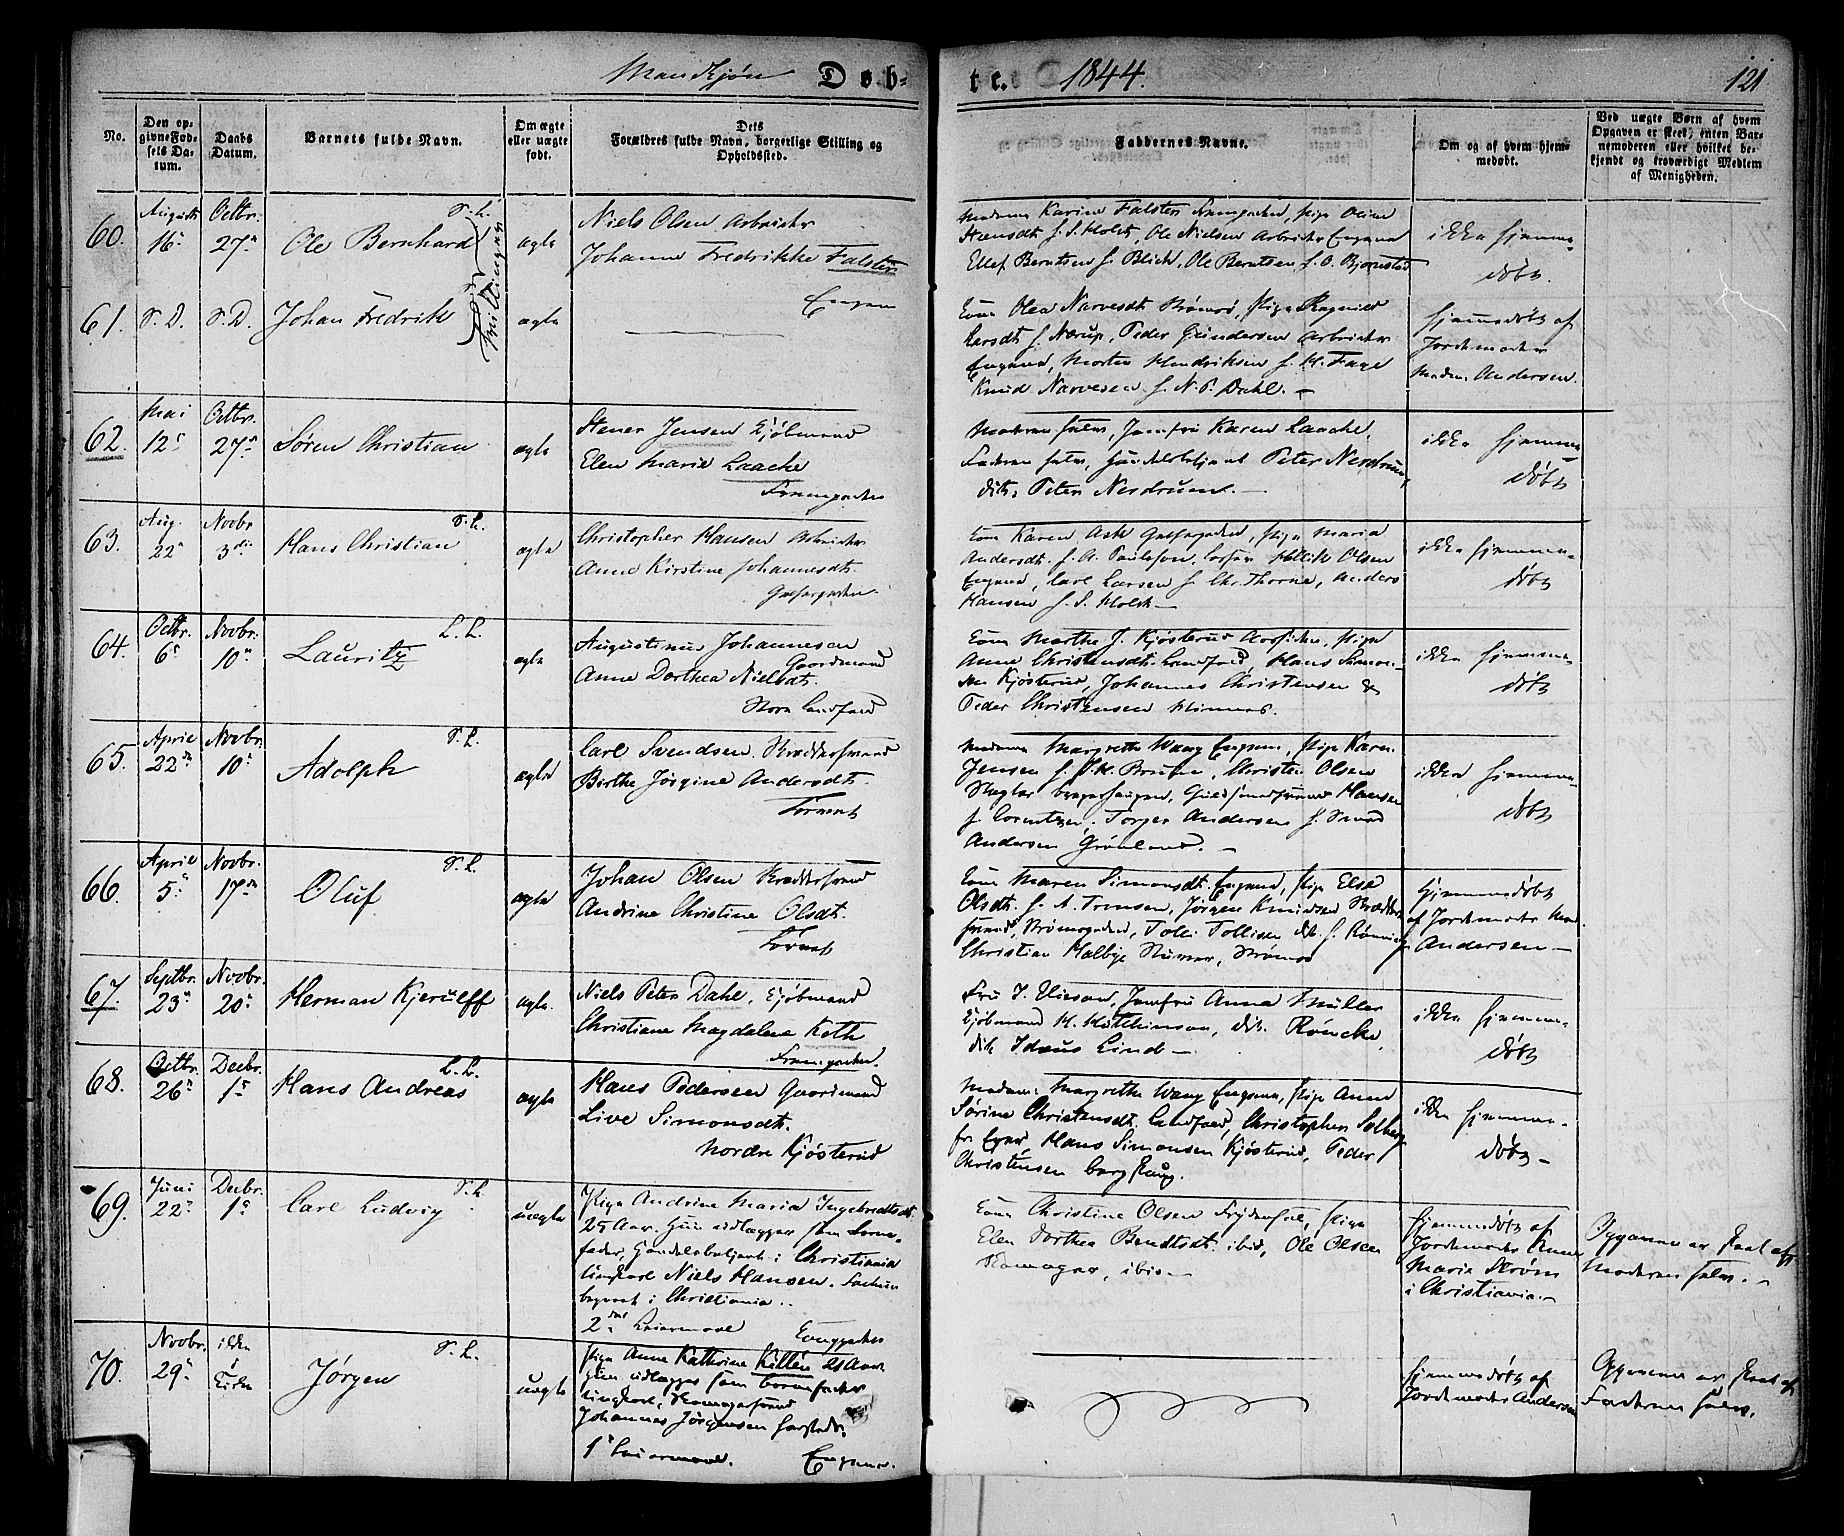 Mandkjøn Døb-
te. 1844. 121
No.
Den op-
givne Fød-
sels Da-
tum.
Daabs
Datum.
Barnets fulde Navn.
Om ægte
eller uægte
født.
Dets
Forældres fulde Navn, borgerlige Stilling og
Opholdssted.
Faddernes Navne.
Om og af hvem hjem-
medøbt.
Ved uægte Børn af hvem
Opgaven er skeet, enten Bar-
nemoderen eller hvilket be-
kjendt og troværdigt Medlem
af Menigheden.
60.
August
16
Octbr.
27
Ole Bernhard
T. L.
Tvillinger
ægte
Niels Olsen Arbeider
Johanne Fredrikke Falsten
Engene
Madame Karine Falsten
Ole Nielsen Arbeider Engene
Ellef Berntsen f. Blich, Ole Berntsen f. O. Bjørnstad
ikke hjemme-
døbt.
61.
S. D.
S. D.
Johan Fredrik
ægte
Kone Olea Narvesdt. Strømsø, Pige Ragnild
Larsdt. f. Nærup, Peder Gundersen Arbeider
Engene, Morten Hendriksen f. H. Fage
Knud Narvesen f. N. P. Dahl. -
hjemmedøbt af
Jordemoder
Madm. Andersen.
62.
Mai
12
Octbr.
27
Søren Christian
ægte
Stener Jensen Kjøbmand
Elen Marie Laache
Moderen selv, Jomfru Karen Laache,
Faderen selv, Handelsbetjent Peter Nerdrum,
dito Peter Nerdrum. -
ikke hjemme-
døbt
63.
Aug.
22
Novbr
3die
Hans Christian
T. L.
ægte
Christopher Hansen Arbeider
Anne Kirstine Johannesdt.
Kone Karen Ask Pige Maria
Andersdt. f. A. Paulsson, Olsen
Engene, Carl Larsen f. Chr. Thorne, Anders
Hansen f. S. Holst -
ikke hjemme-
døbt
64.
Octbr.
6
Novbr.
10
Lauritz
L. L.
ægte
Augustinus Johannesen
Gaardmand
Anne Dorthea Nielsdt.
Store Landfald
Kone Marthe J. Kjøsterud Pige
Anne Christensdt. Landfald, Hans Simon-
sen Kjøsterud, Johannes Christensen &
Peder Christensen
ikke hjemme-
døbt
65.
April
22
Novbr.
10
Adolph
T. L.
ægte
Carl Svendsen
Birthe Jørgine Andersdt.
Tørvet
Madame Margrethe Wang Engene, Pige Karen
Jensen f. Bruun, Christen Olsen
Hansen
f. Lorentzen, Torger Andersen f. Svend
Andersen Grønland. -
ikke hjemme-
døbt
66.
April
5
Novbr.
17
Oluf
T. L.
ægte
Johan Olsen
Andrine Christine Olsdt.
Tørvet
Kone Maren Simonsdt. Engene, Pige Else
Olsdt. f. A. Trensen, Jørgen Knudsen
Tollef Tollefsen
Christian Strømsø
hjemmedøbt
af Jordemoder Mad.
Andersen -
67.
Septbr.
23
Novbr.
20
Herman Kjerulff
ægte.
Niels Peter Dahl, Kjøbmand
Christiane Magdalene Keth
Fru Jomfru Anna Müller
Kjøbmand H. Hutchinson, dito Røncke,
dito Idæus Lind -
ikke hjemme-
døbt
68.
Octbr.
26
Decbr.
1
Hans Andreas
L. L.
ægte
Hans Pedersen Gaardmand
Live Simonsdt.
Nordre Kjøsterud
Madame Margrethe Wang Engene, Pige Anne
Sørine Christensdt. Landfald, Christopher Solberg
fr. Eger, Hans Simonsen Kjøsterud, Peder
Christensen
ikke hjemme-
døbt -
69.
Juni
22
Decbr.
1
Carl Ludvig
T. L.
uægte
Pige Andrine Maria Ingebretsdt.
25 Aar. Hun udlægger som Barne-
fader, Handelsbetjent i Christiania
Ungkarl Niels Hansen.
i Christiania.
2 Leiermaal
Kone Christine Olsen Pige
Elen Dorthea Bendtsdt. ibid, Ole Olsen
ibid -
hjemmedøbt af
Jordemoder Anne
Marie Strøm
i Christiania. -
Opgaven er skeet af
Moderen selv. -
70.
Novbr.
29
ikke
i
Kirke
Jørgen
T. L.
uægte
Pige Anne Kathrine 21 Aar
Hun udlægger som Barnefader
Ungkarl,
Johannes Jørgensen
1 Leiermaal.
Engene.
hjemmedøbt af
Jordemoder Andersen
Opgaven er skeet af
Faderen selv.